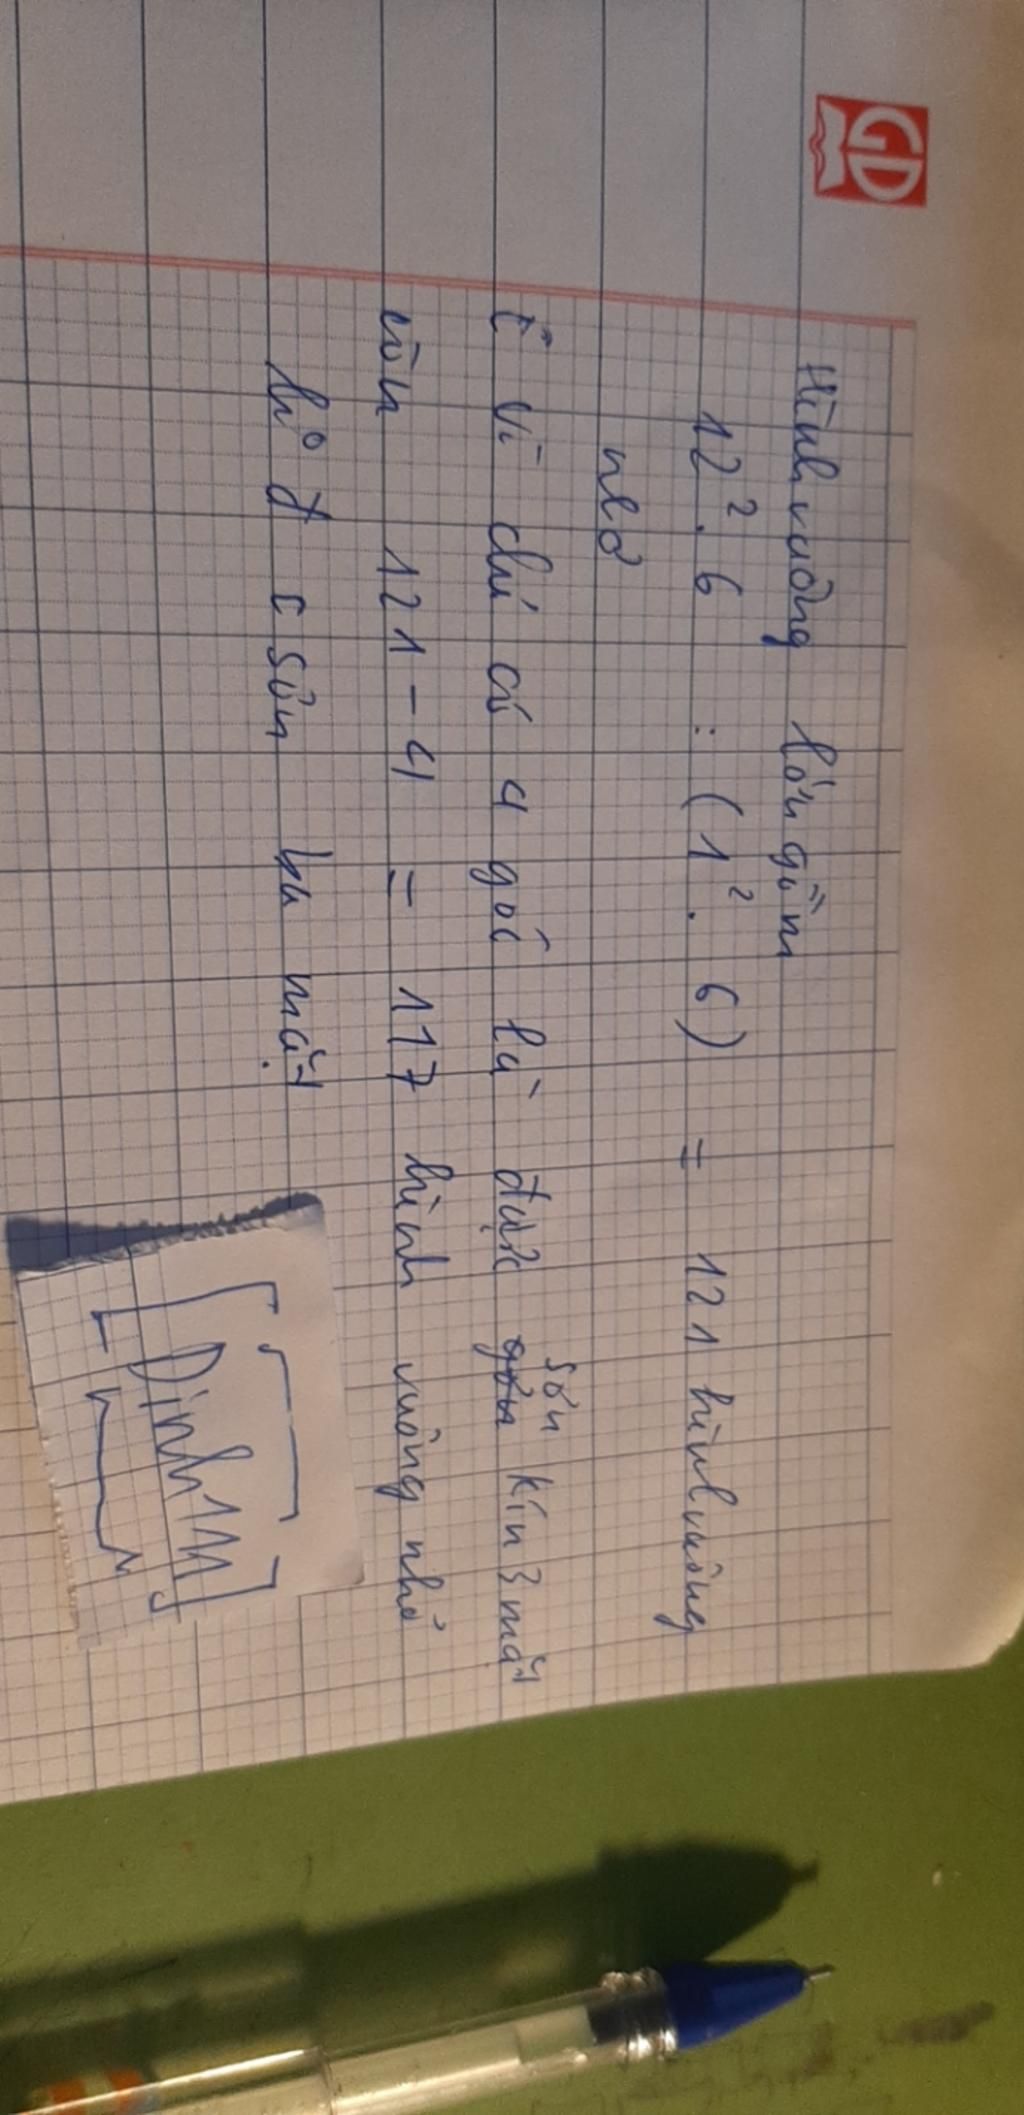 GD
Hình vuông lớn gồm
12². 6 : (1². 6) = 121 hình vuông
nhỏ
Vì chỉ có 4 góc là được sơn kín 3 mặt
còn 121 - 4 = 117 hình vuông nhỏ
k° đ c sơn ba mặt
Dinh111